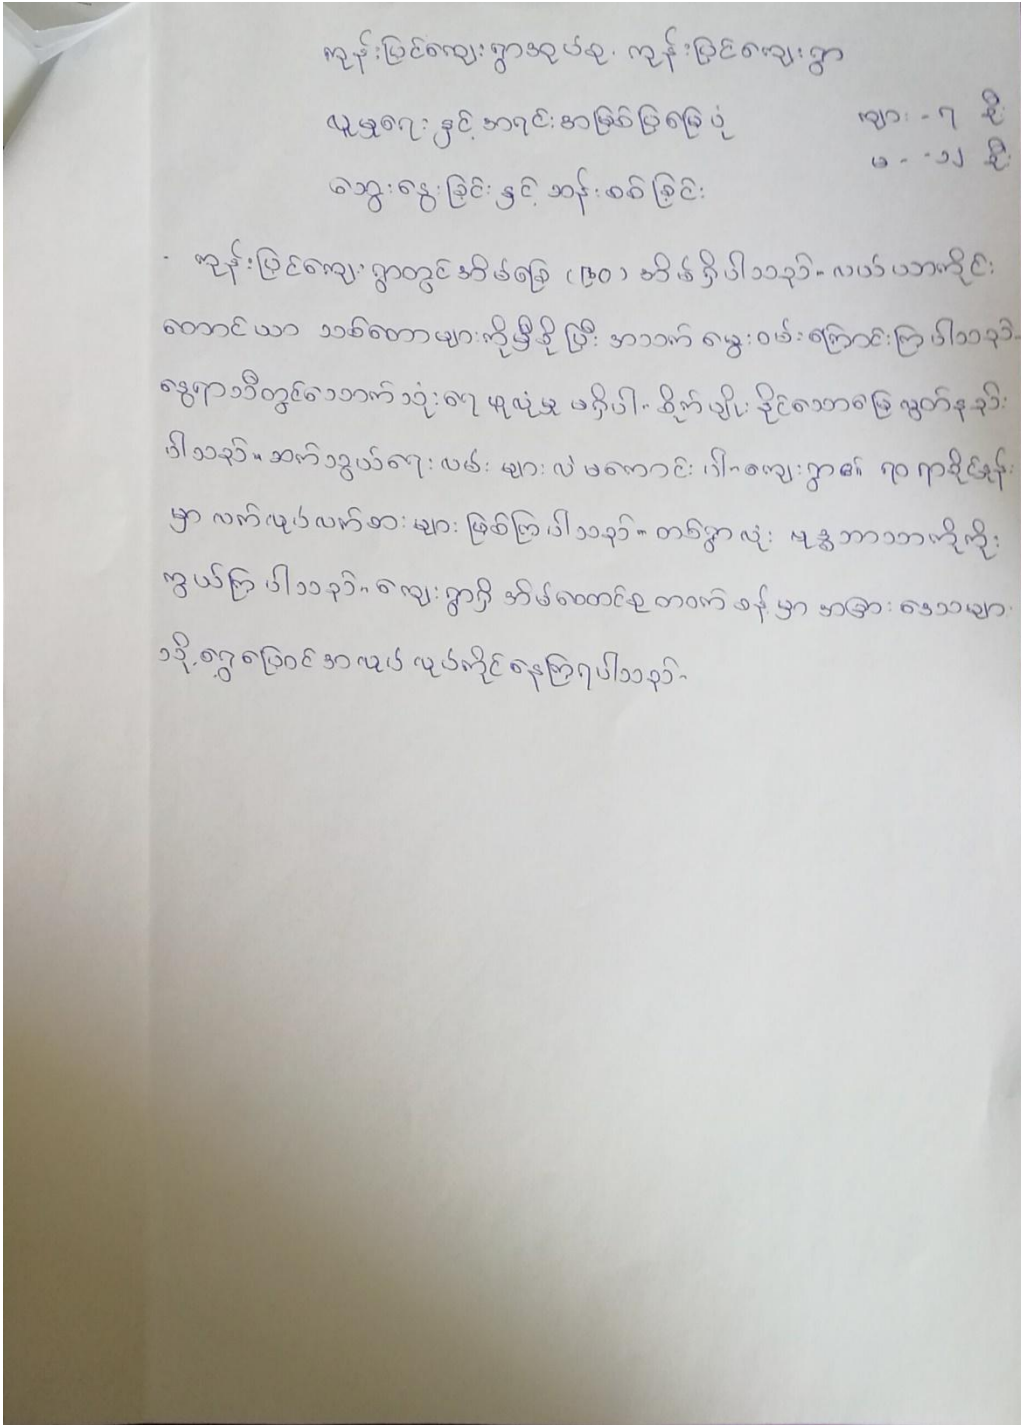 ကုန်းပြင်ကျေးရွာအုပ်စု၊ ကုန်းပြင်ကျေးရွာ
လူမှုရေး နှင့် အရင်းအမြစ်ပြမြေပုံ ကျား - ၇ ဦး
မ - ၁၂ ဦး
ဆွေးနွေးခြင်း နှင့် ဆန်းစစ်ခြင်း
- ကုန်းပြင်ကျေးရွာတွင် အိမ်ခြေ (၆၀) အိမ်ရှိပါသည်။ လယ်ယာကိုင်း
တောင်ယာ သစ်တောများကိုမှီခို ပြီး အသက် မွေးဝမ်းကြောင်းကြပါသည်။
နွေရာသီတွင်သောက်သုံးရေ ဖူလုံမှု မရှိပါ။ စိုက်ပျိုးနိုင်သောမြေလွတ်နည်း
ပါသည်။ ဆက်သွယ်ရေးလမ်း များလဲ မကောင်းပါ။ ကျေးရွာ၏ ၇၀ ရာခိုင်နှုန်း
မှာ လက်လုပ်လက်စားများ ဖြစ်ကြပါသည်။ တစ်ရွာလုံး ဗုဒ္ဓဘာသာကိုကိုး
ကွယ်ကြပါသည်။ ကျေးရွာရှိ အိမ်ထောင်စု တဝက် ခန့်မှာ အခြားဒေသများ
သို့ ရွှေ့ပြောင်းအလုပ် လုပ်ကိုင်နေကြရပါသည်။